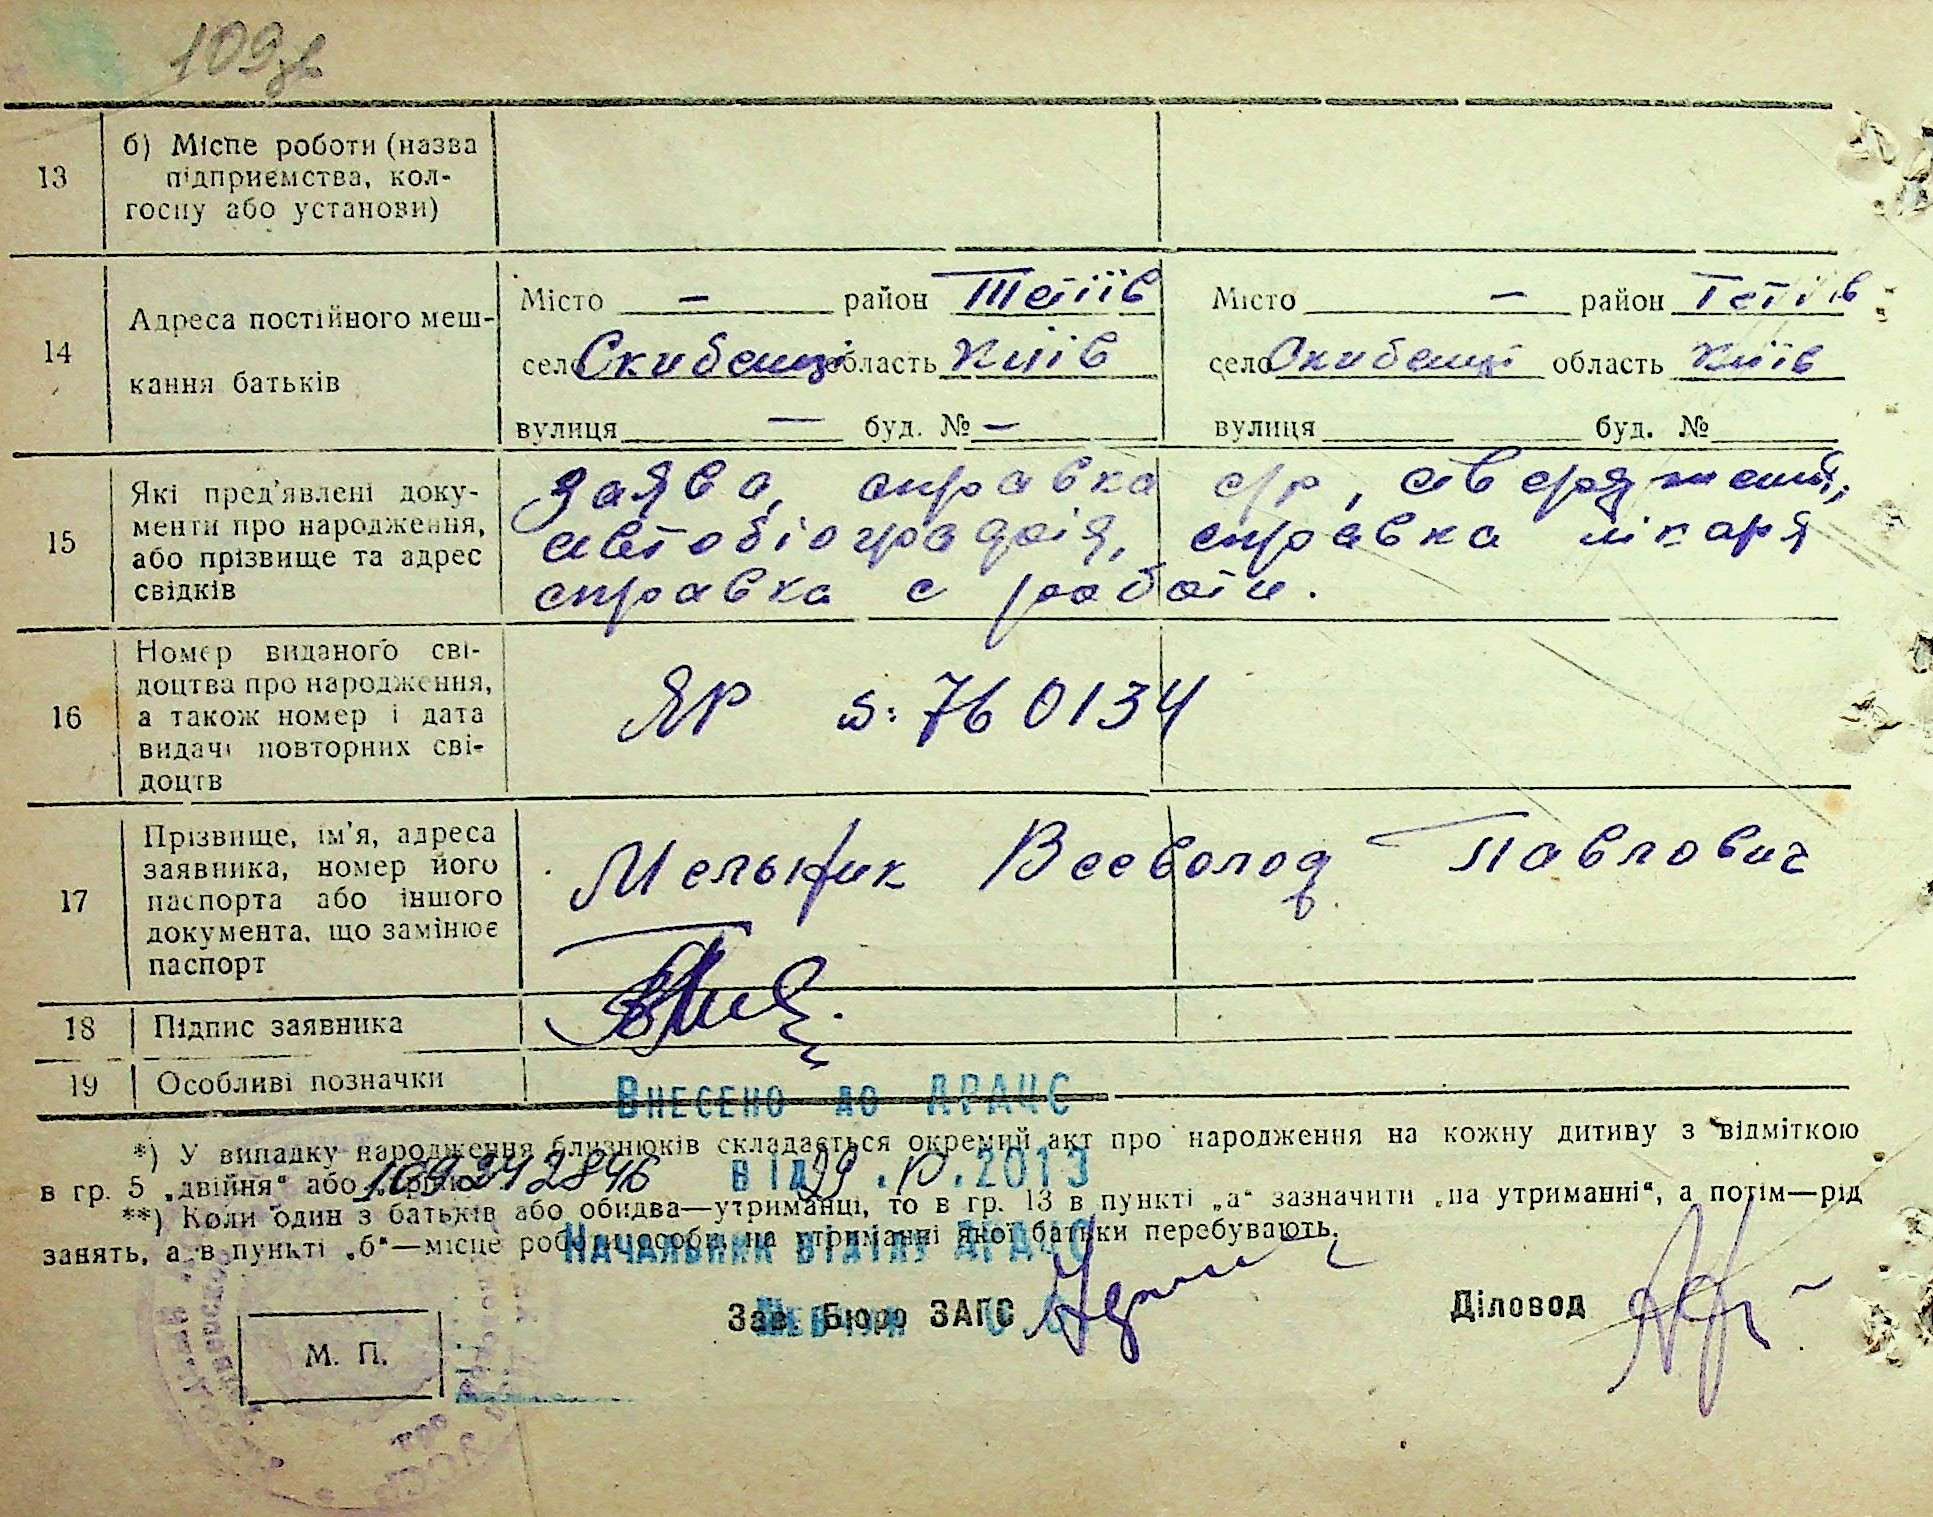 109зв
13 б) Місце роботи (назва
підприємства, кол-
госпу або установи)
14 Адреса постійного меш-
кання батьків
Місто — район Тетіїв
село Скибенці область Київ
вулиця — буд. № —
Місто — район Тетіїв
село Скибенці область Київ
вулиця буд. №
15 Які пред'явлені доку-
менти про народження,
або прізвище та адрес
свідків
Заява, справка с/р,
автобіографія, справка лікаря
справка с работи.
16 Номер виданого сві-
доцтва про народження,
а також номер і дата
видачі повторних сві-
доцтв
ЯР 760134
17 Прізвище, ім'я, адреса
заявника, номер його
паспорта або іншого
документа, що замінює
паспорт
Мельник Всеволод Павлович
18 Підпис заявника
19 Особливі позначки
Внесено до ДРАЦС
*) У випадку народження близнюків складається окремий акт про народження на кожну дитину з відміткою
в гр. 5 „двійня“ або
від 29.10.2013
**) Коли один з батьків або обидва—утриманці, то в гр. 13 в пункті „а“ зазначити „на утриманні“, а потім—рід
занять, а в пункті „б“—місце роботи особи, на утриманні якої батьки перебувають.
Начальник відділу ДРАЦС
Зав. Бюро ЗАГС
Діловод
М. П.